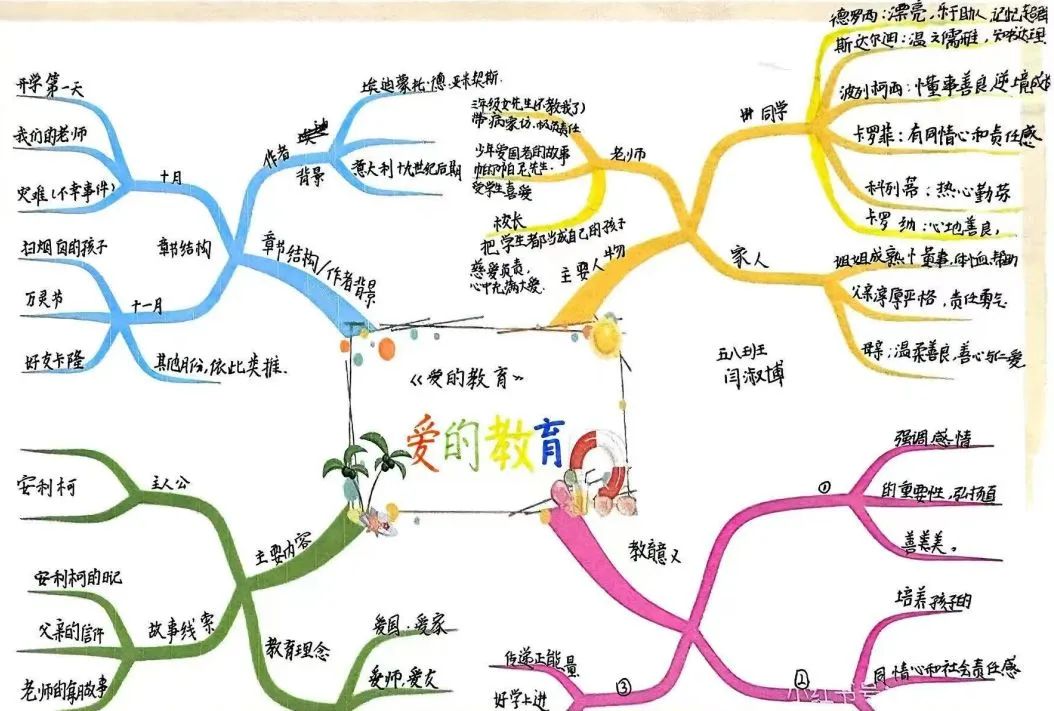 《爱的教育》
爱的教育
五八班
闫淑博
章节结构/作者背景
章节结构
十月
开学第一天
我们的老师
灾难(不幸事件)
十一月
扫烟囱的孩子
万灵节
好友卡隆
其他月份,依此类推.
作者
背景
埃迪蒙托·德·亚米契斯.
意大利十九世纪后期
主要人物
老师
三年级女先生(还教我了)
带病家访,极负责任
少年爱国者的故事
帕尔帕尼先生.
受学生喜爱
校长
把学生都当成自己的孩子
慈爱负责,
心中充满大爱.
同学
德罗西:漂亮,乐于助人,记忆超强
斯达尔迪:温文儒雅,知书达理
波列柯西:懂事善良逆境成
卡罗菲:有同情心和责任感
科列蒂:热心勤劳
卡罗纳:心地善良,
家人
姐姐成熟懂事,体恤,帮助
父亲淳厚严格,责任勇气
母亲:温柔善良,善心与仁爱
主要内容
主人公
安利柯
故事线索
安利柯的日记
父亲的信件
老师的每月故事
教育理念
爱国·爱家
爱师,爱友
教育意义
①
强调感情
的重要性,弘扬真
善美。
②
培养孩子的
同情心和社会责任感
③
传递正能量
好学上进
小红书号